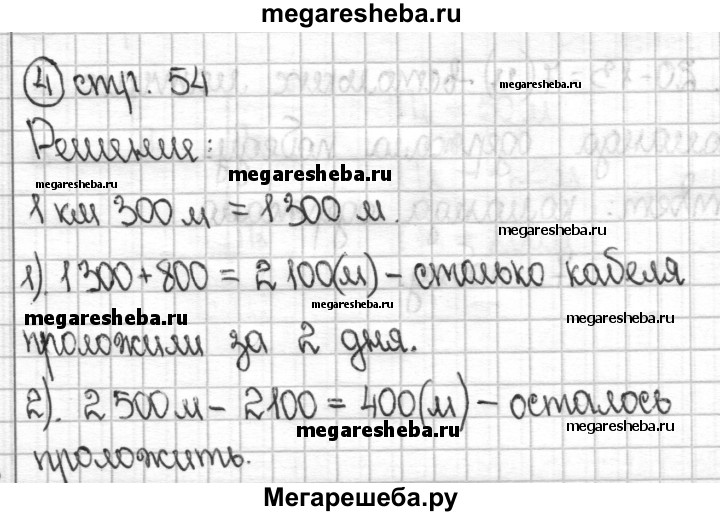 megaresheba.ru
4 стр. 54
Решение:
megaresheba.ru
megaresheba.ru
1 км 300 м = 1 300 м.
megaresheba.ru
1). 1 300 + 800 = 2 100(м) - столько кабеля
megaresheba.ru
megaresheba.ru
megaresheba.ru
проложили за 2 дня.
2). 2 500 м - 2100 = 400(м) - осталось
megaresheba.ru
megaresheba.ru
проложить.
Мегарешеба.ру